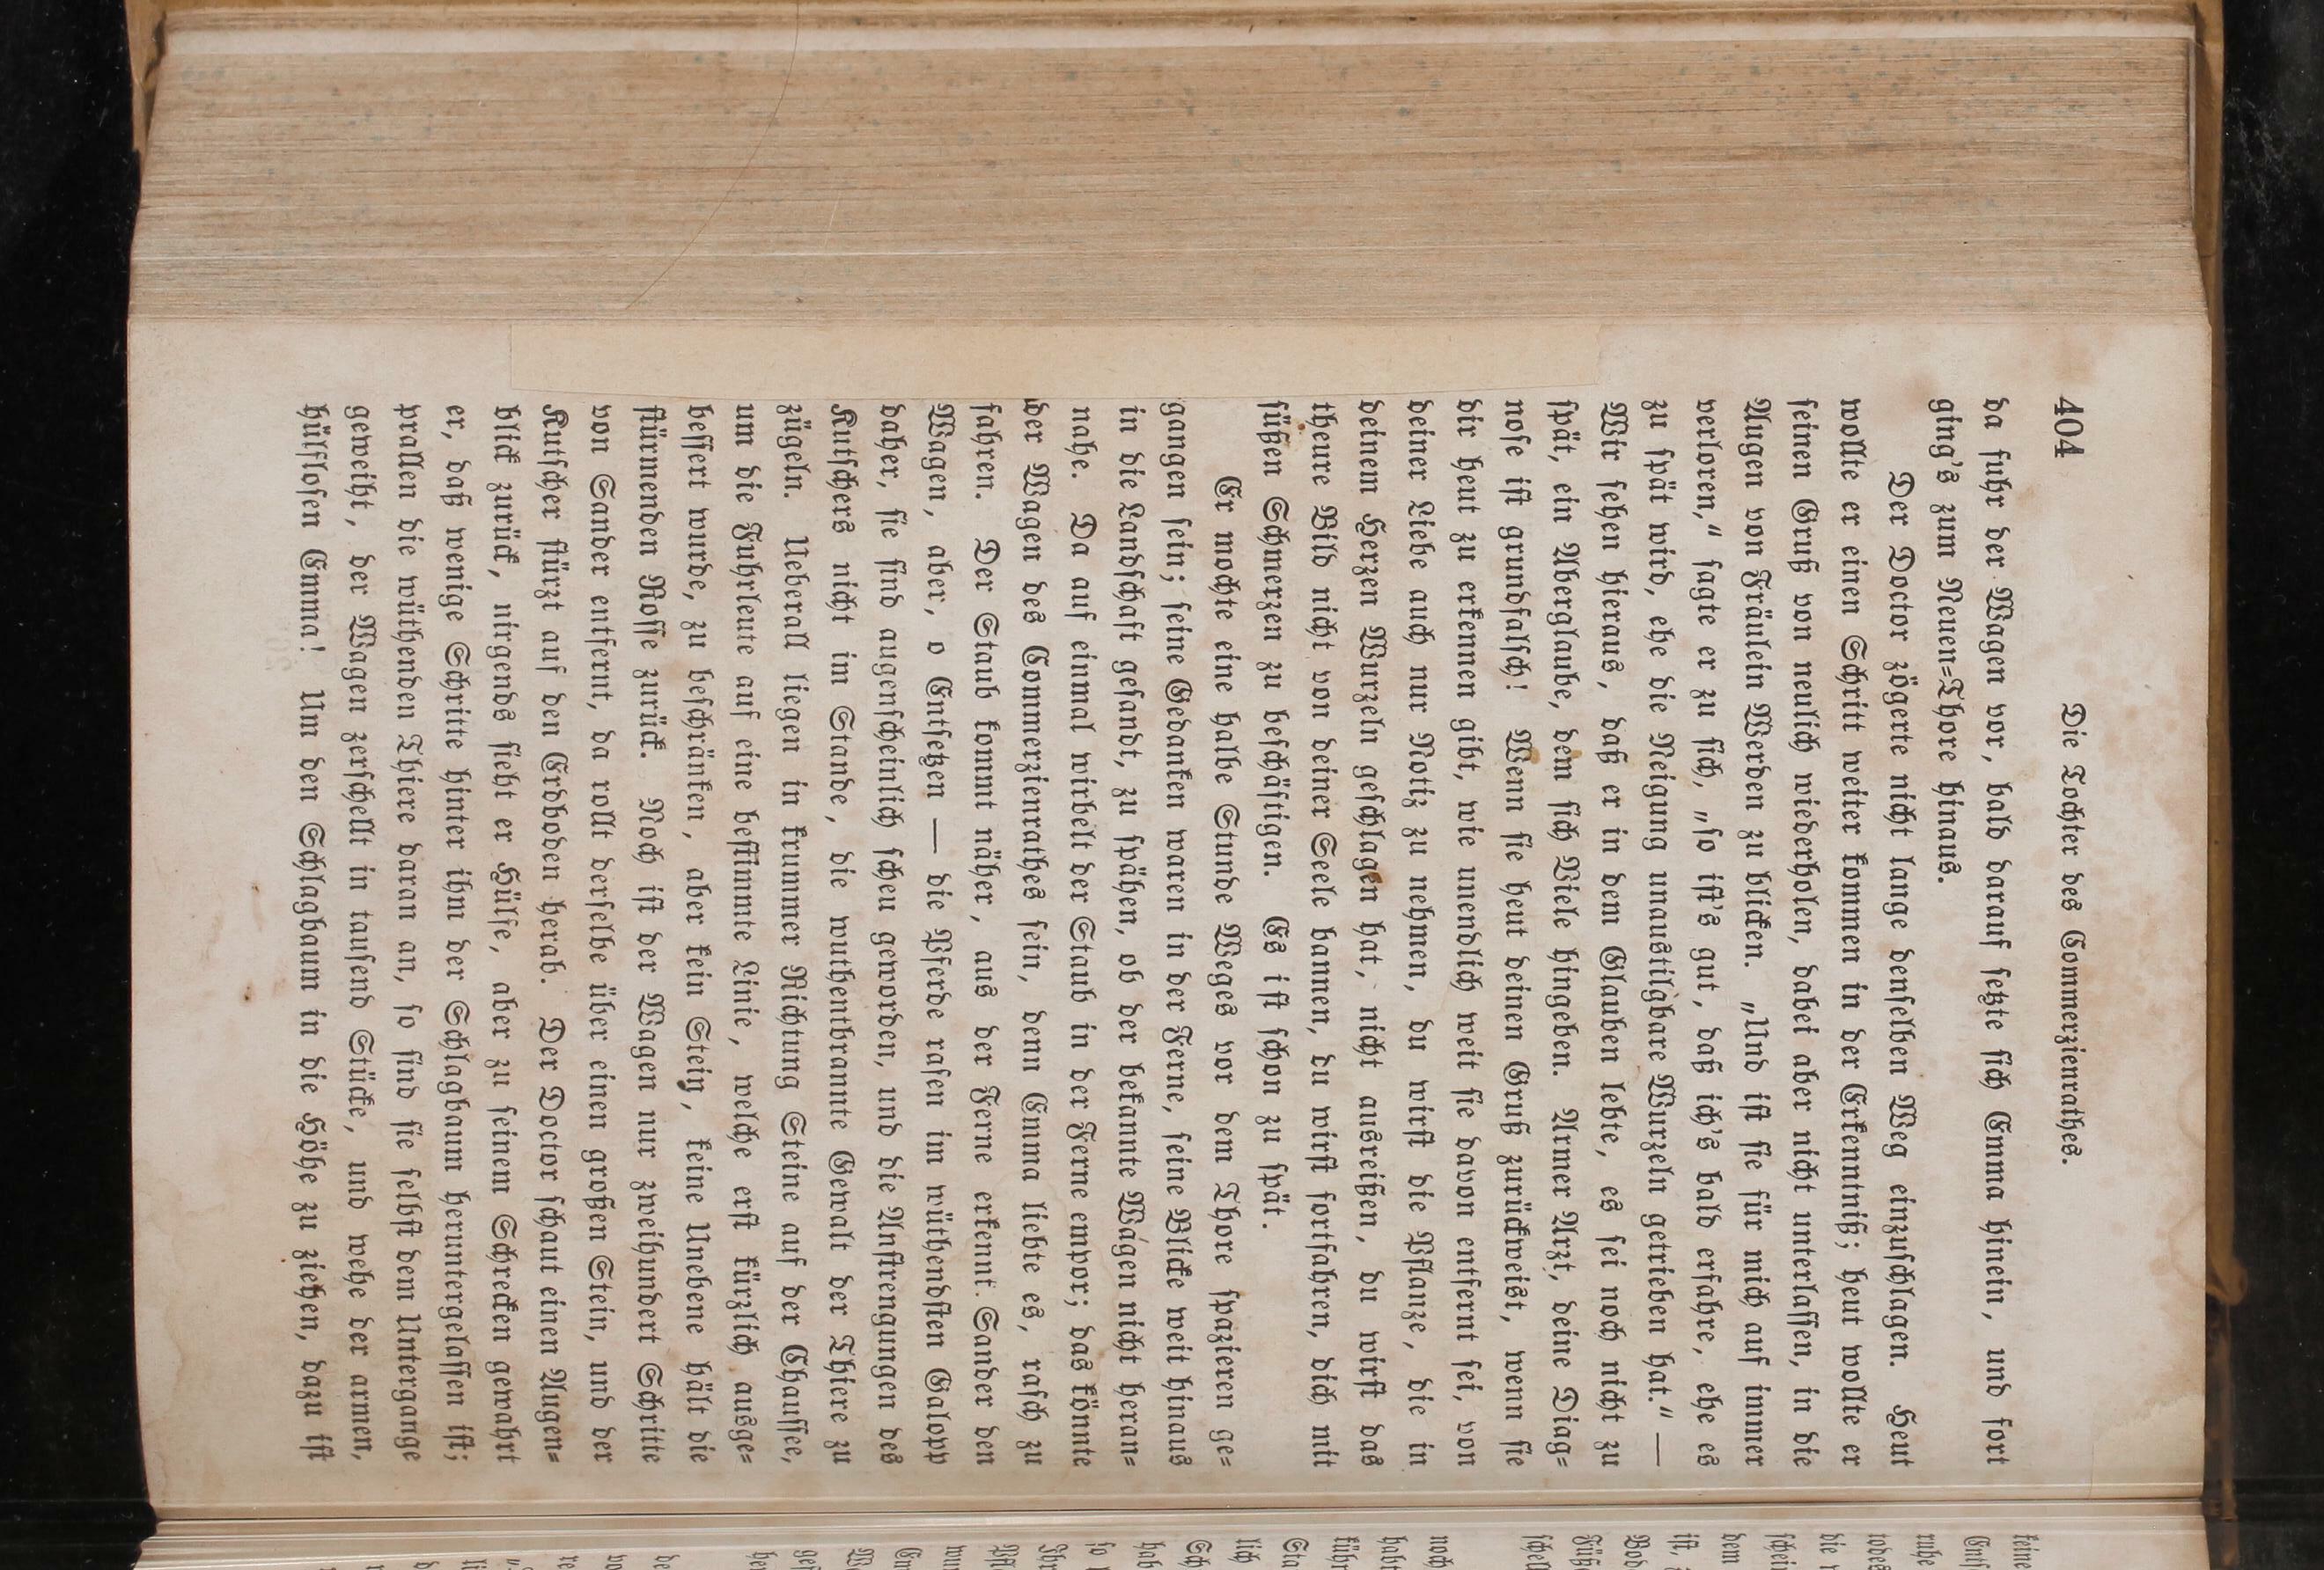 404 Die Tochter des Commerzienrathes.
da fuhr der Wagen vor, bald darauf ſetzte ſich Emma hinein, und fort
ging's zum Neuen-Thore hinaus.
Der Doctor zögerte nicht lange denſelben Weg einzuſchlagen. Heut
wollte er einen Schritt weiter kommen in der Erkenntniß; heut wollte er
ſeinen Gruß von neulich wiederholen, dabei aber nicht unterlaſſen, in die
Augen von Fräulein Werden zu blicken. „Und iſt ſie für mich auf immer
verloren,“ ſagte er zu ſich, „ſo iſt's gut, daß ich's bald erfahre, ehe es
zu ſpät wird, ehe die Neigung unaustilgbare Wurzeln getrieben hat.“ —
Wir ſehen hieraus, daß er in dem Glauben lebte, es ſei noch nicht zu
ſpät, ein Aberglaube, dem ſich Viele hingeben. Armer Arzt, deine Diag-
noſe iſt grundfalſch! Wenn ſie heut deinen Gruß zurückweist, wenn ſie
dir heut zu erkennen gibt, wie unendlich weit ſie davon entfernt ſei, von
deiner Liebe auch nur Notiz zu nehmen, du wirſt die Pflanze, die in
deinem Herzen Wurzeln geſchlagen hat, nicht ausreißen, du wirſt das
theure Bild nicht von deiner Seele bannen, du wirſt fortfahren, dich mit
ſüßen Schmerzen zu beſchäftigen. Es iſt ſchon zu ſpät.
Er mochte eine halbe Stunde Weges vor dem Thore ſpazieren ge-
gangen ſein; ſeine Gedanken waren in der Ferne, ſeine Blicke weit hinaus
in die Landſchaft geſandt, zu ſpähen, ob der bekannte Wagen nicht heran-
nahe. Da auf einmal wirbelt der Staub in der Ferne empor; das könnte
der Wagen des Commerzienrathes ſein, denn Emma liebte es, raſch zu
fahren. Der Staub kommt näher, aus der Ferne erkennt Sander den
Wagen, aber, o Entſetzen — die Pferde raſen im wüthendſten Galopp
daher, ſie ſind augenſcheinlich ſcheu geworden, und die Anſtrengungen des
Kutſchers nicht im Stande, die wuthentbrannte Gewalt der Thiere zu
zügeln. Ueberall liegen in krummer Richtung Steine auf der Chauſſee,
um die Fuhrleute auf eine beſtimmte Linie, welche erſt kürzlich ausge-
beſſert wurde, zu beſchränken, aber kein Stein, keine Unebene hält die
ſtürmenden Roſſe zurück. Noch iſt der Wagen nur zweihundert Schritte
von Sander entfernt, da rollt derſelbe über einen großen Stein, und der
Kutſcher ſtürzt auf den Erdboden herab. Der Doctor ſchaut einen Augen-
blick zurück, nirgends ſieht er Hülfe, aber zu ſeinem Schrecken gewahrt
er, daß wenige Schritte hinter ihm der Schlagbaum heruntergelaſſen iſt;
prallen die wüthenden Thiere daran an, ſo ſind ſie ſelbſt dem Untergange
geweiht, der Wagen zerſchellt in tauſend Stücke, und wehe der armen,
hülfloſen Emma! Um den Schlagbaum in die Höhe zu ziehen, dazu iſt